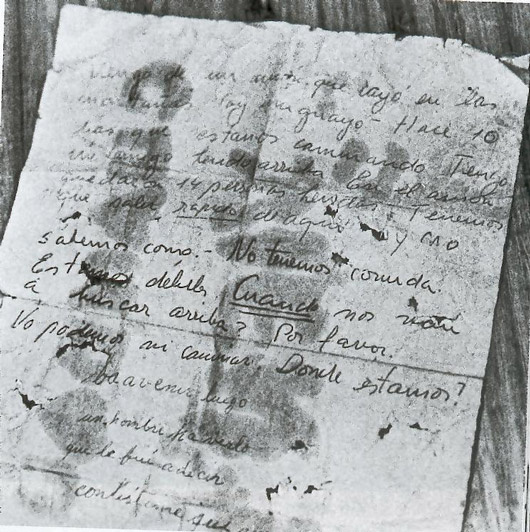 Vengo de un avión que cayó en las
montañas. Soy uruguayo - Hace 10
días que estamos caminando Tengo
un amigo herido arriba En el avión
quedaron 14 personas heridas Tenemos
que salir rápido de aquí y no
sabemos como.- No tenemos comida.
Estamos debiles Cuando nos van
a buscar arriba? Por favor.
No podemos ni caminar. Donde estamos?
ba avenir luego
un hombre a verlo
que le fui a decir
contésteme que